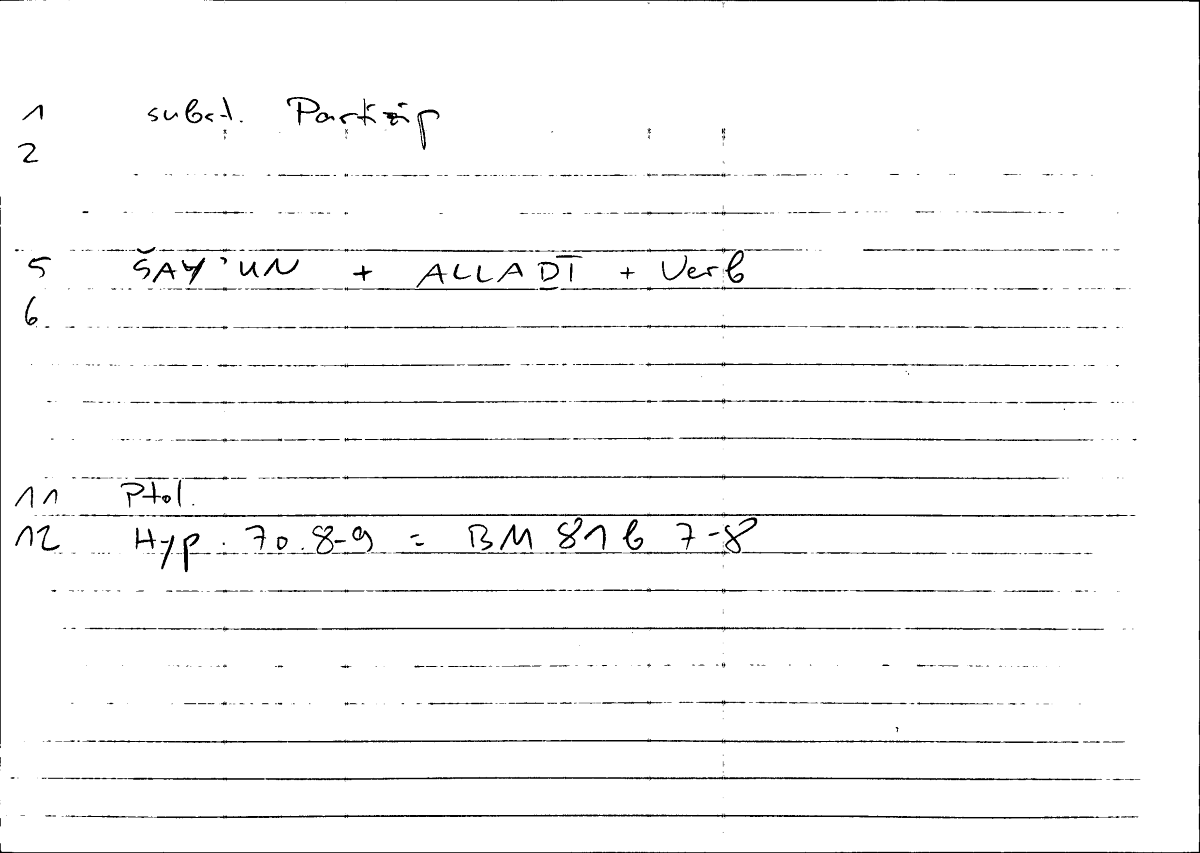 1 subst. Partizip
2
5 ŠAY'UN + ALLAḎĪ + Verb
6
11 Ptol.
12 Hyp. 70.8-9 = BM 81b 7-8